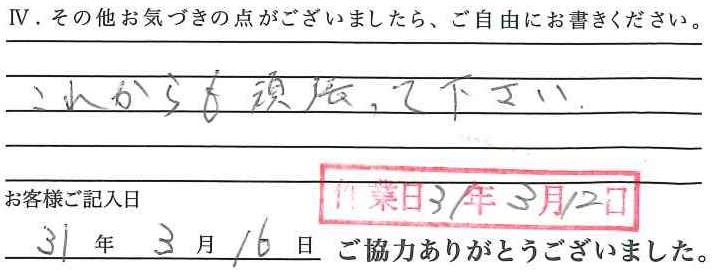 Ⅳ．その他お気づきの点がございましたら、ご自由にお書きください。
これからも頑張って下さい.
作業日31年3月12日
お客様ご記入日
31年3月16日 ご協力ありがとうございました。